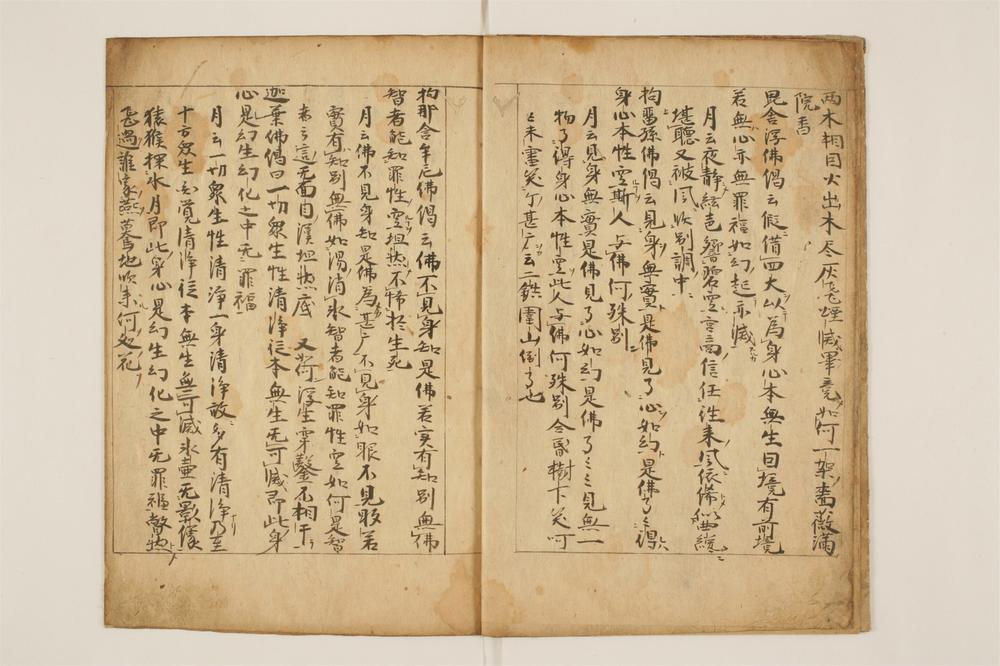 両木相因火出木尽灰飛煙滅畢竟如何一架薔薇満
院香
毘舎浮佛偈云假借四大以為身心本無生因境有前境
若無心亦無罪福如幻起亦滅
月云夜静絃声響碧空宮商信任往来風依俙似曲纔
堪聴又被風吹別調中
拘留孫佛偈云見身無實是佛見了心如幻是佛了了得
身心本性空斯人与佛何殊別
月云見身無實是佛見了心如幻是佛了了了見無一
物了得身心本性空此人与佛何殊別令我樹下笑呵
呵云二鉄圍山倒了也
拘那含牟尼佛偈云佛不見身知是佛若実有知別無佛
智者能知罪性空坦然不怖於生死
月云佛不見身知是佛為甚不見身如眼不見眼若
實有知別無佛如湯消氷智者能知罪性空如何是智
者云這无面目漢坦然底又如何浮生穿鑿不相干
迦葉佛偈曰一切衆生性清淨従本無生无可滅即此身
心是幻生幻化之中无罪福
月云一切衆生性清淨一身清淨故多有清淨乃至
十方衆生圓覚清淨従本無生無可滅氷壷无影像
猿猴探水月即此身心是幻生幻化之中无罪福瞥然
飛過誰家燕驀地吹来何処花